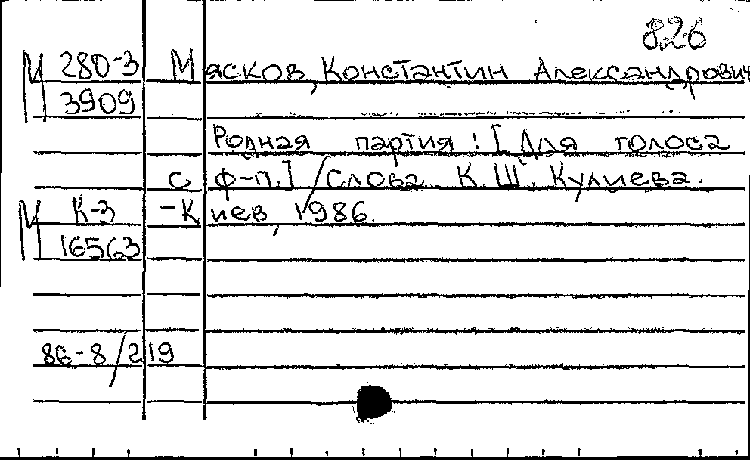 826
М 280-3 Мясков, Константин Александрович
3909
Родная партия : [Для голоса
с ф-п.] / Слова К.Ш. Кулиева.
М К-3 - Киев, 1986.
16563
86-8/219